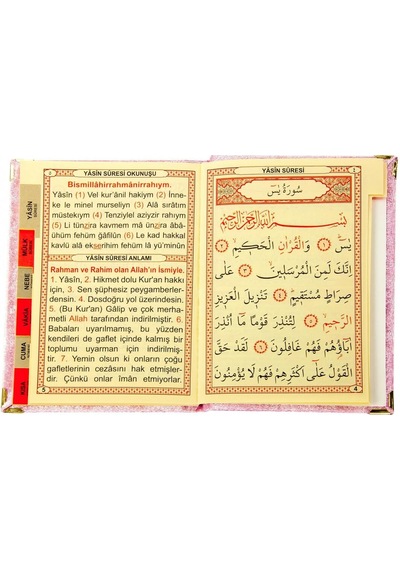 YÂSÎN SÛRESİ OKUNUŞU
Bismillâhirrahmânirrahıym.
Yâsîn (1) Vel kur'ânil hakiym (2) İnne-
ke le minel murseliyn (3) Alâ sırâtım
müstekıym (4) Tenziylel aziyzir rahıym
(5) Li tünzira kavmem mâ ünzira âbâ-
ühüm fehüm ğâfilûn (6) Le kad hakkal
kavlü alâ ekserihim fehüm lâ yü'minûn
YÂSÎN SÛRESİ ANLAMI
Rahman ve Rahim olan Allah'ın İsmiyle.
1. Yâsîn, 2. Hikmet dolu Kur'an hakkı
için, 3. Sen şüphesiz peygamberler-
densin. 4. Dosdoğru yol üzerindesin.
5. (Bu Kur'an) Gâlip ve çok merha-
metli Allah tarafından indirilmiştir. 6.
Babaları uyarılmamış, bu yüzden
kendileri de gaflet içinde kalmış bir
toplumu uyarman için indirilmiş-
tir. 7. Yemin olsun ki onların çoğu
gafletlerinin cezasını hak etmişler-
dir. Çünkü onlar îmân etmiyorlar.
5
YÂSİN
MÜLK
NEBE
VAKIA
CUMA
YÂSÎN SÛRESİ
سُورَةُ يٰسٓ
بِسْمِ اللّٰهِ الرَّحْمٰنِ الرَّحِيمِ
يٰسٓ ﴿١﴾ وَالْقُرْاٰنِ الْحَكِيمِ ﴿٢﴾
اِنَّكَ لَمِنَ الْمُرْسَلِينَ ﴿٣﴾ عَلٰى
صِرَاطٍ مُسْتَقِيمٍ ﴿٤﴾ تَنْزِيلَ الْعَزِيزِ
الرَّحِيمِ ﴿٥﴾ لِتُنْذِرَ قَوْمًا مَٓا اُنْذِرَ
اٰبَٓاؤُهُمْ فَهُمْ غَافِلُونَ ﴿٦﴾ لَقَدْ حَقَّ
الْقَوْلُ عَلٰٓى اَكْثَرِهِمْ فَهُمْ لَا يُؤْمِنُونَ
4